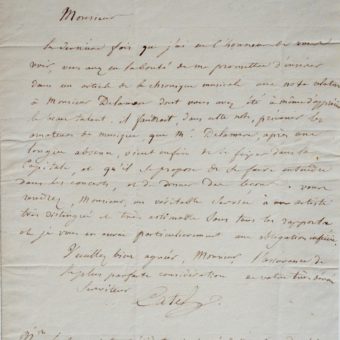 Monsieur
la dernière fois que j'ai eu l'honneur de vous
voir, vous avez eu la bonté de me promettre d'insérer
dans un article de la chronique musicale une note relative
à Monsieur Delamare dont vous avez été à même d'apprécier
le beau talent. il faudrait, dans cette note, prévenir les
amateurs de musique que Mr. Delamare, après une
longue absence, vient enfin de se fixer dans la
Capitale, et qu'il se propose de se faire entendre
dans les concerts, et de donner des leçons. vous
rendrez, Monsieur, un véritable service à un artiste
très distingué et très estimable sous tous les rapports
et je vous en aurai particulièrement une obligation infinie.
Veuillez bien agréer, Monsieur l'assurance de
la plus parfaite considération de votre très dévoué
Serviteur
Catel